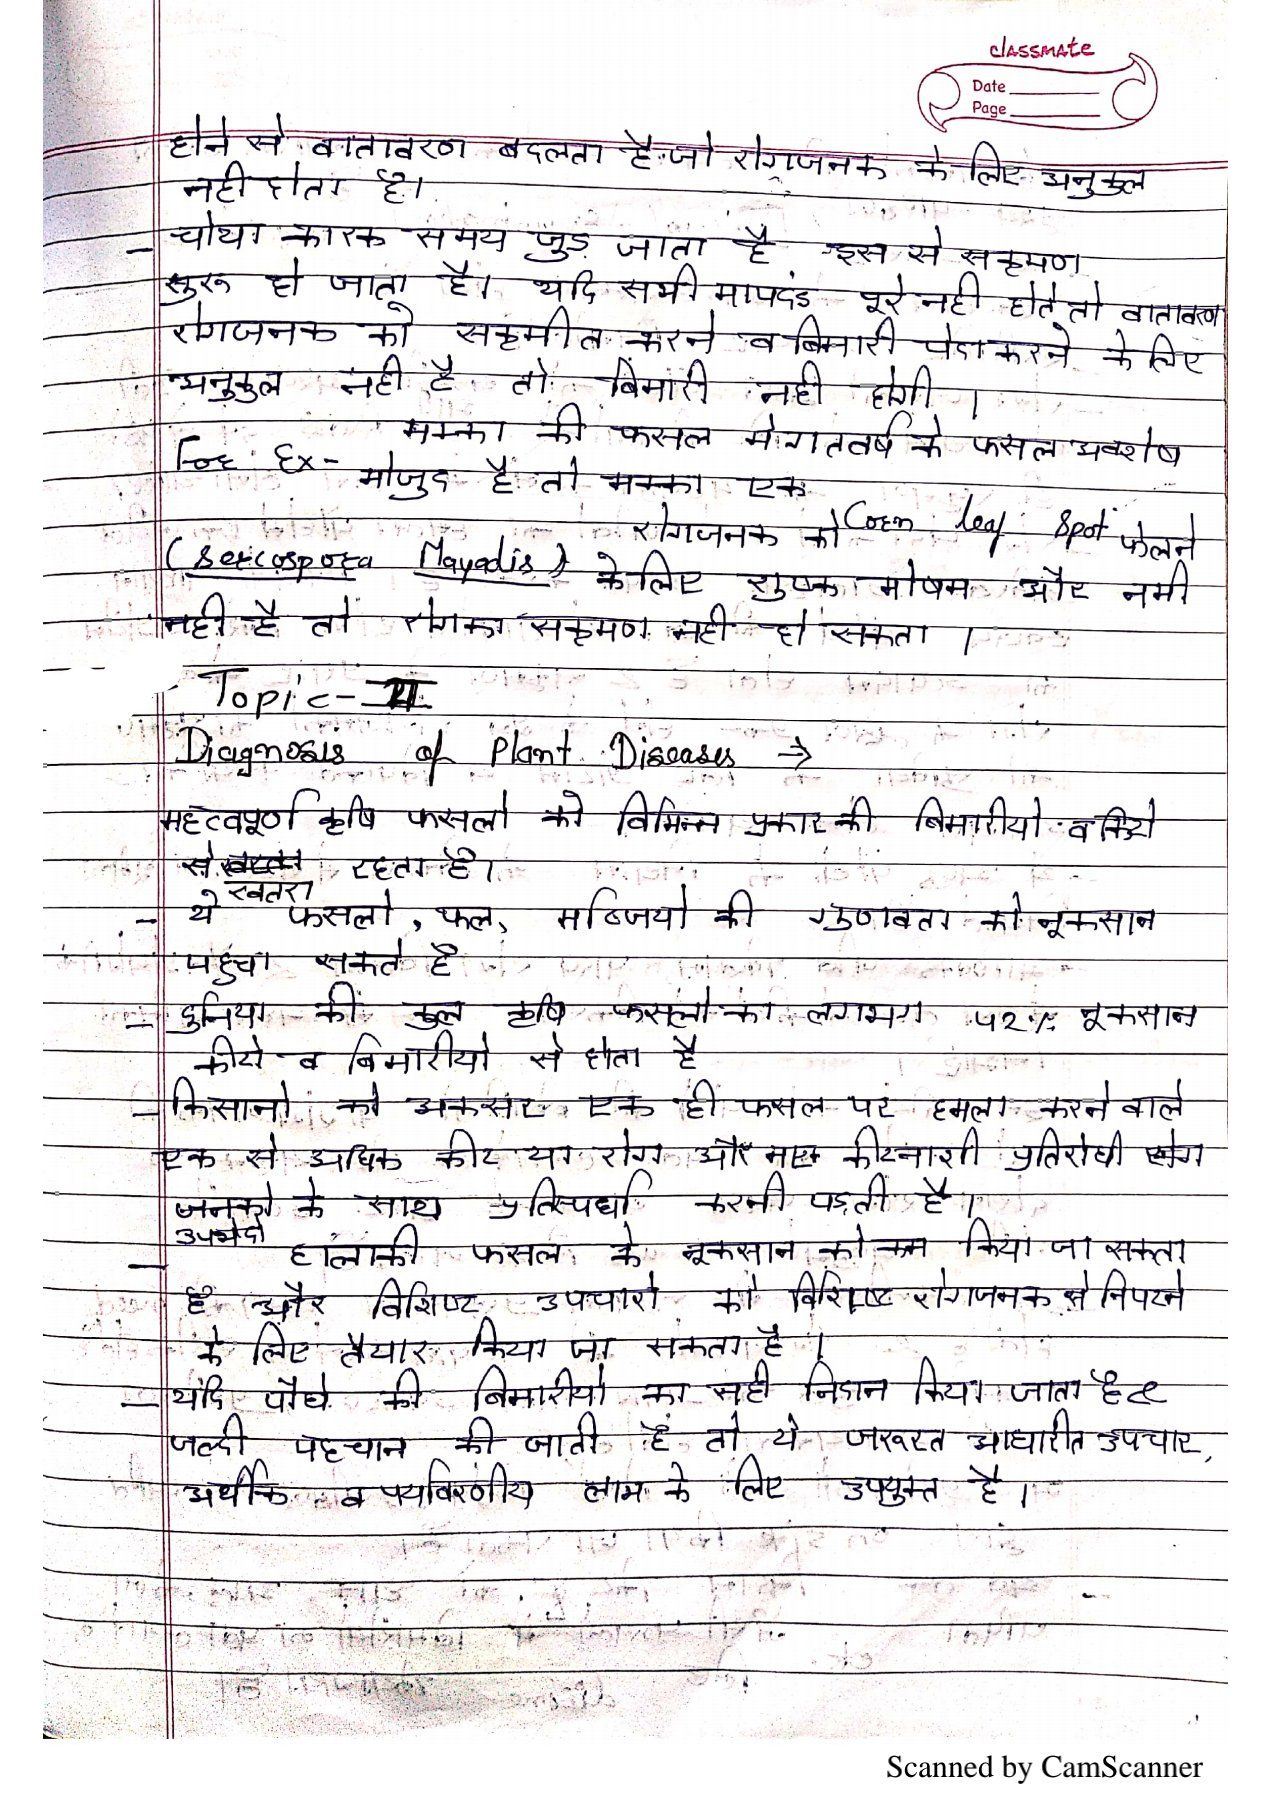 classmate
Date
Page
होने से वातावरण बदलता है जो रोगजनक के लिए अनुकुल
नही होता है।
- चोथा कारक समय जुड़ जाता है इस से सक्रमण
सुरू हो जाता है। यदि सभी मापदंड पूरे नही होते तो वातावरण
रोगजनक को सक्रमीत करने व बिमारी पेदा करने के लिए
अनुकुल नही है तो बिमारी नही होगी।
मक्का की फसल मे गतवर्ष के फसल अवशेष
For Ex- मोजुद है तो मक्का एक
रोगजनक को Corn leaf Spot फेलने
(Sercospora Mayadis) के लिए शुष्क मोषम और नमी
नही है तो रोग का सक्रमण नही हो सकता।
Topic-II
Diagnosis of Plant Diseases →
महत्वपूर्ण कृषि फसलो को विभिन्न प्रकार की बिमारीयो व किटो
से खतरा रहता है।
- ये फसलो, फल, सब्जियो की गुणवता को नूकसान
पहुचा सकते है
- दुनिया की कुल कृषि फसलो का लगभग 42% नूकसान
कीटो व बिमारीयो से होता है
- किसानो को अकसर एक ही फसल पर हमला करने वाले
एक से अधिक कीट या रोग और कीटनाशी प्रतिरोधी रोग
जनको के साथ प्रतिस्पर्धा करनी पड़ती है।
उपभेदो
- हालाकी फसल के नूकसान को कम किया जा सकता
है और विशिष्ट उपचारो को विशिष्ट रोगजनक से निपटने
के लिए तैयार किया जा सकता है।
- यदि पौधे की बिमारीयो का सही निदान किया जाता है
जल्दी पहचान की जाती है तो ये जरूरत आधारीत उपचार,
अर्थीक व पर्यावरणीय लाभ के लिए उपयुक्त है।
Scanned by CamScanner